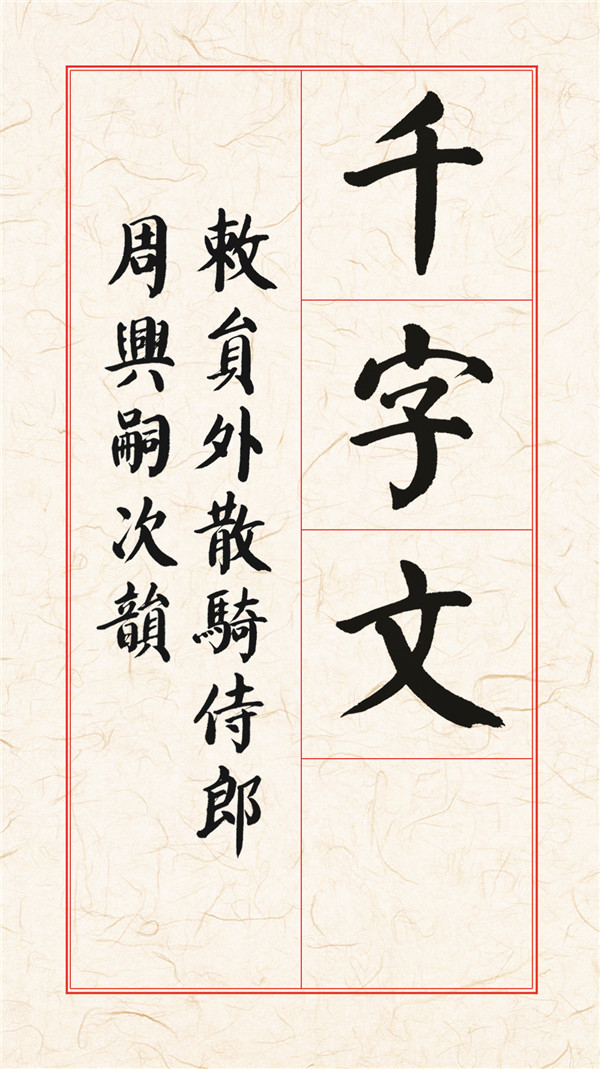 千字文
敕員外散騎侍郎
周興嗣次韻